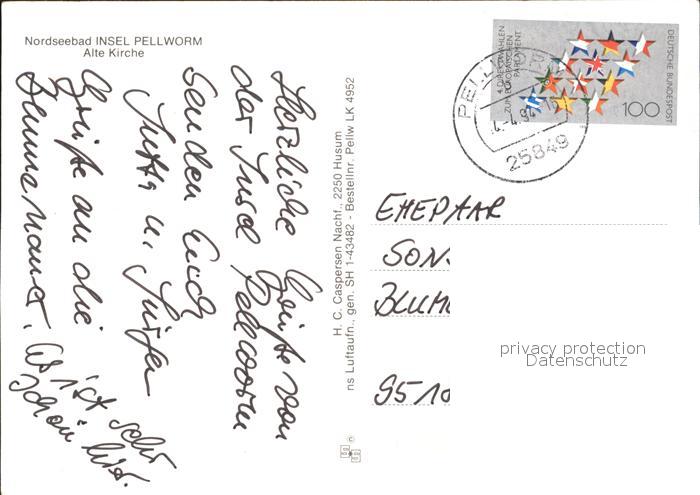 Nordseebad INSEL PELLWORM
Alte Kirche
Herzliche Grüße von
der Insel Pellworm
senden Euch
Jutta u. Jürgen
Grüße an die
Blumenauer. Es ist sehr
schön hier.
H. C. Caspersen Nachf., 2250 Husum
ns Luftaufn., gen. SH 1-43482 - Bestellnr. Pellw LK 4952
4. DIREKTWAHLEN
ZUM EUROPÄISCHEN
PARLAMENT
DEUTSCHE BUNDESPOST
100
25849
EHEPAAR
SON
BLUM
9510
privacy protection
Datenschutz